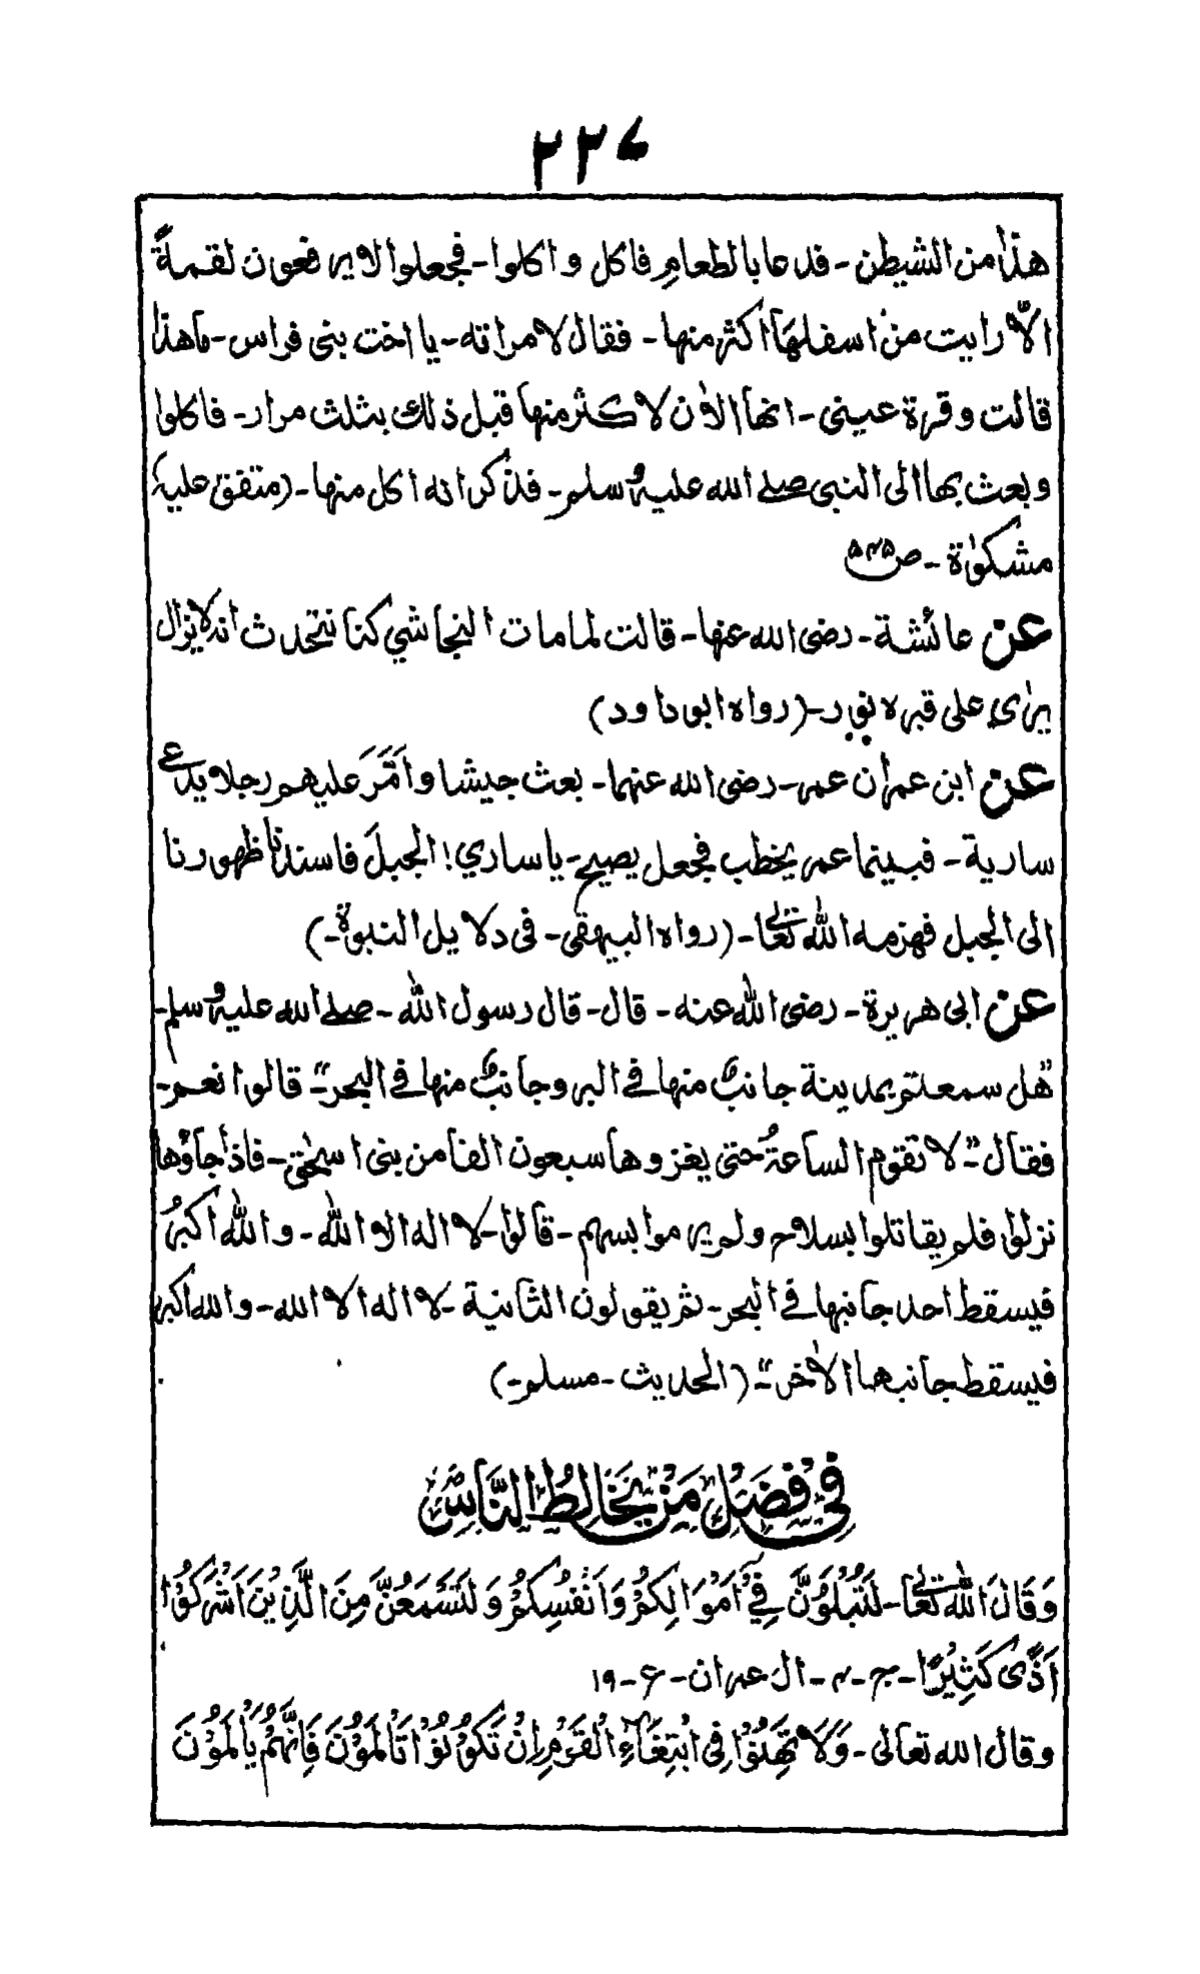 ٢٢٧
هذا من الشيطن - فدعا بالطعام فاكل واكلوا - فجعلوا لا يرفعون لقمةً
الّا رايت من اسفلها اكثر منها - فقال لامراته - يا اخت بنى فراس - ما هذا
قالت وقرة عينى - انها الاٰن لاكثر منها قبل ذلك بثلث مرار - فاكلوا
وبعث بها الى النبى صلے الله عليہ وسلم - فذكر انه اكل منها - (متفق عليہ)
مشكوٰة - ص ۵۴۵
عن عائشة - رضى الله عنها - قالت لما مات النجاشي كنا نتحدث انه لا يزال
يرٰى على قبره نور - (رواه ابو داود)
عن ابن عمر ان عمر - رضى الله عنهما - بعث جيشا واَمَّرَ عليهم رجلا يدعٰے
سارية - فبينما عمر يخطب فجعل يصيح - يا ساري! الجبلَ فاسندنا ظهورنا
الى الجبل فهزمه اللّٰه تعالٰے - (رواه البيهقى - فى دلايل النبوة -)
عن ابى هريرة - رضى اللّٰه عنه - قال - قال رسول اللّٰه - صلے الله عليہ وسلم -
"هل سمعتم بمدينة جانبٌ منها فے البر وجانبٌ منها فے البحر" - قالوا نعم -
فقال - "لا تقوم الساعةُ حتى يغزوها سبعون الفا من بنى اسحٰق - فاذا جاؤها
نزلوا فلم يقاتلوا بسلاح ولم يرموا بسهم - قالوا - لا اله الا اللّٰه - واللّٰه اكبرُ
فيسقط احد جانبها فے البحر - ثم يقولون الثانية - لا اله الا الله - والله اكبر
فيسقط جانبها الاٰخر" - (الحديث - مسلم -)
فِىْ فَضْلِ مَنْ يُخَالِطُ النَّاسَ
وَقَالَ اللّٰه تعالٰے - لَتُبْلَوُنَّ فِىْٓ اَمْوَالِكُمْ وَاَنْفُسِكُمْ وَلَتَسْمَعُنَّ مِنَ الَّذِيْنَ اَشْرَكُوْا
اَذًى كَثِيْرًا - ج - ۴ - ال عمران - ع - ۱۹
وقال الله تعالى - وَلَا تَهِنُوْا فِى ابْتِغَآءِ الْقَوْمِ اِنْ تَكُوْنُوْا تَاْلَمُوْنَ فَاِنَّهُمْ يَاْلَمُوْنَ